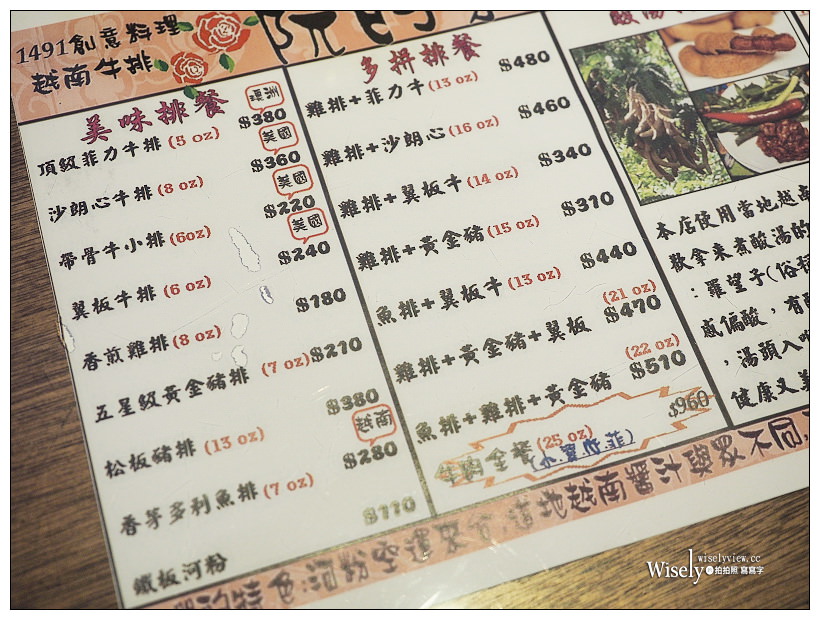 1491創意料理
越南牛排
美味排餐
頂級菲力牛排 (5 oz) $380
沙朗心牛排 (8 oz) 美國 $360
帶骨牛小排 (6oz) 美國 $220
翼板牛排 (6 oz) 美國 $240
香煎雞排 (8 oz) $180
五星級黃金豬排 (7 oz) $210
松板豬排 (13 oz) $380
香茅多利魚排 (7 oz) 越南 $280
鐵板河粉 $110
多拼排餐
雞排+菲力牛 (13 oz) $480
雞排+沙朗心 (16 oz) $460
雞排+翼板牛 (14 oz) $340
雞排+黃金豬 (15 oz) $310
魚排+翼板牛 (13 oz) $440
雞排+黃金豬+翼板 (21 oz) $470
魚排+雞排+黃金豬 (22 oz) $510
全餐 (25 oz) $960
酸湯
本店使用當地越南
歡拿來煮酸湯的
：羅望子(俗稱
感偏酸，有
，湯頭入
健康又美
特色:河粉空運來台,道地越南醬汁與眾不同,
wiselyview.cc
Wisely 拍拍照 寫寫字